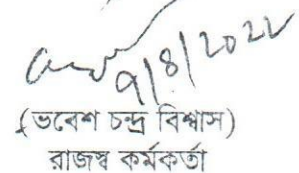 9/8/2022
(ভবেশ চন্দ্র বিশ্বাস)
রাজস্ব কর্মকর্তা